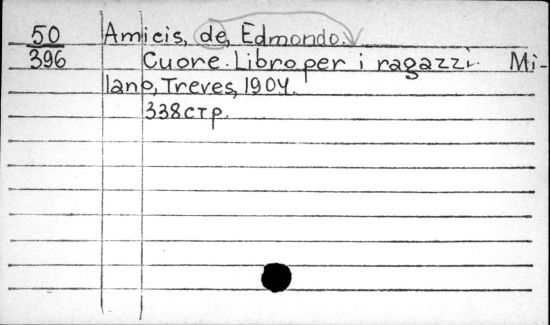 50 Amicis, de, Edmondo.
396 Cuore. Libro per i ragazzi. Mi-
lano, Treves, 1904.
338 стр.